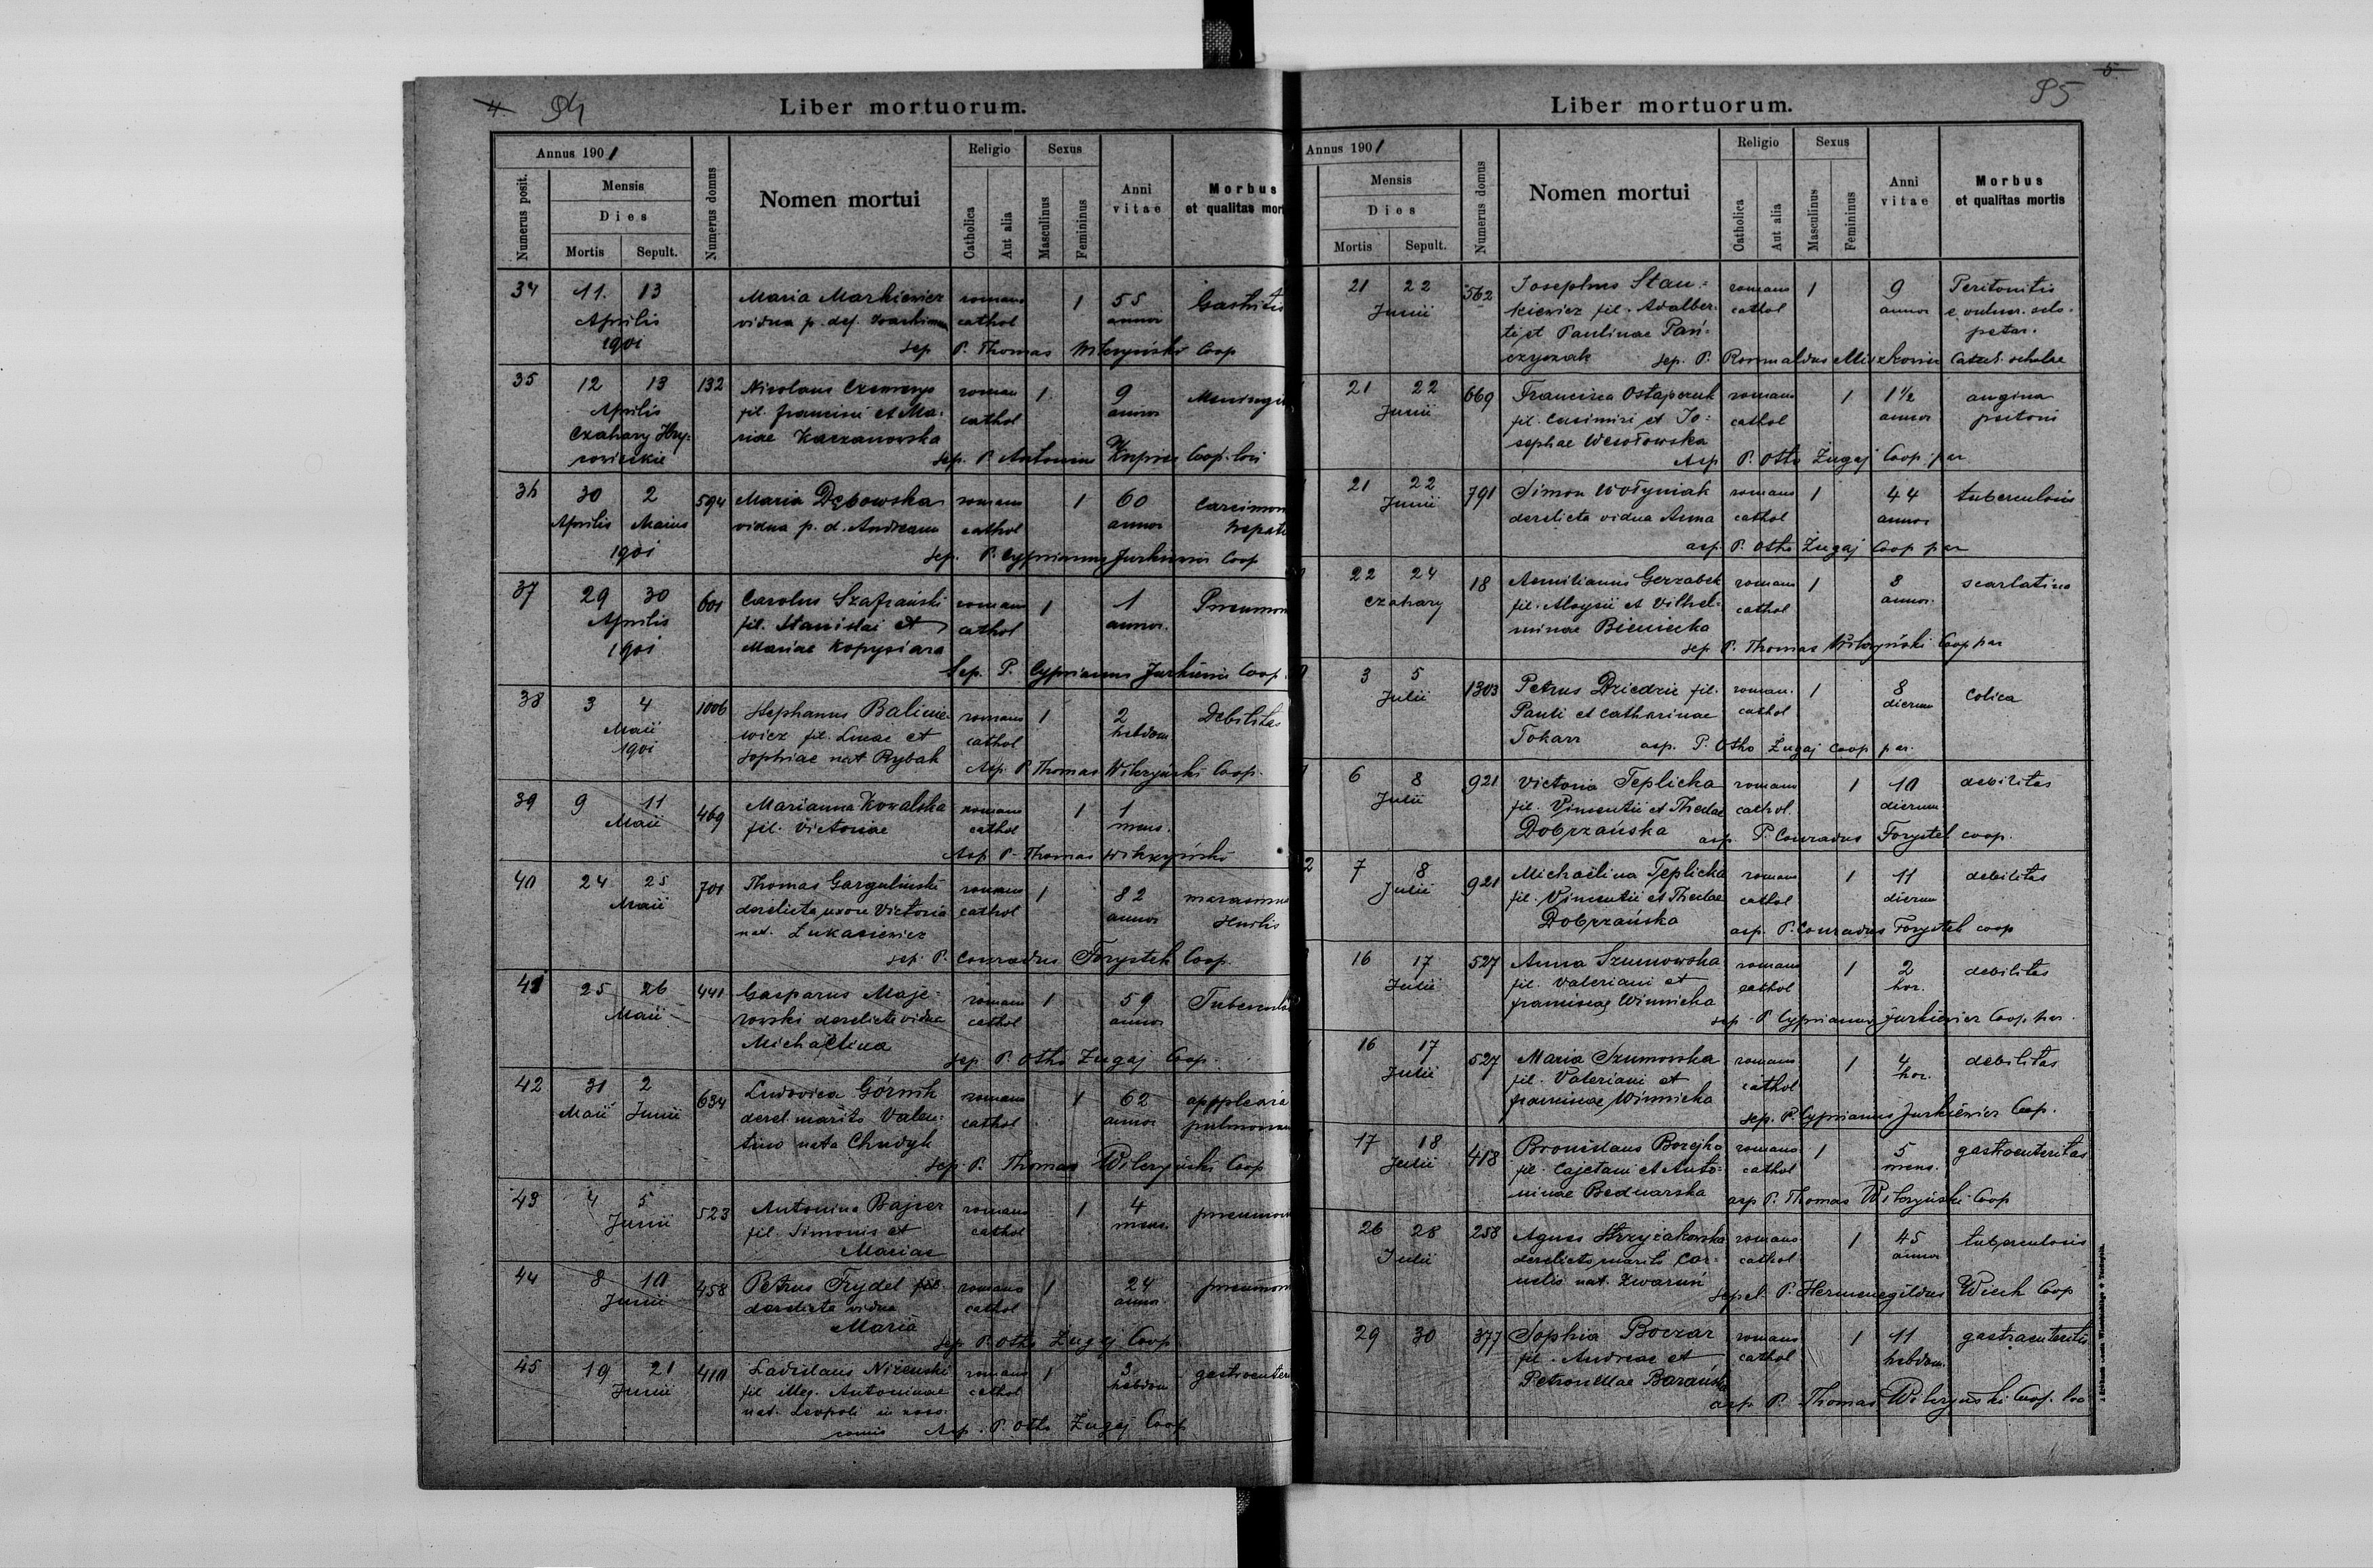 4 94
Liber mortuorum.
Annus 1901
Numerus posit.
Mensis
Dies
Mortis Sepult.
Numerus domus
Nomen mortui
Religio
Catholica
Aut alia
Sexus
Masculinus
Femininus
Anni vitae
Morbus
et qualitas mort
34 11. 13 Maria Markiewicz romano 1 55 Gastritis
Aprilis vidua p. def. Joachimum cathol annor
1901 sep P. Thomas Wilczyński Coop
35 12 13 132 Nicolaus Czemerys roman 1 9 Meningit
Aprilis fil. Francisci et Ma- cathol annor
Czahary Hry- riae Kaczanowska
sep. P. Antonius Coop. loci
36 30 2 594 Maria Dębowska romano 1 60 carcinom
Aprilis Maius vidua p. d. Andream cathol annor hepat
1901 sep. P. Cyprianus Jurkiewicz Coop
37 29 30 601 Carolus Szafrański romano 1 1 Pneumon
Aprilis fil. Stanislai et cathol annor.
1901 Mariae Kopyciara
Sep. P. Cyprianus Jurkiewicz Coop.
38 3 4 1006 Stephanus Balicie- romano 1 2 Debilitas
Maii wicz fil. Lucae et cathol hebdom
1901 Sophiae nat Rybak Asp. P. Thomas Wilczyński Coop.
39 9 11 469 Marianna Kowalska romano 1 1
Maii fil. Victoriae cathol mens.
Asp. P. Thomas Wilczyński
40 24 25 701 Thomas Gargulinski romano 1 82 marasmus
Maii derelicta uxore Victoria cathol annor
nat. Łukasiewicz
sep. P. Conradus Forystek Coop.
41 25 26 441 Gasparus Maje- romano 1 59 Tubercul
Maii rowski derelicta vidua cathol annor
Michaelina sep. P. Otho Żugaj Coop.
42 31 2 634 Ludovica Górnik romano 1 62
Maii Junii derel. marito Valen- cathol annor pulmonum
tino nata Chudyk
sep. P. Thomas Wilczyński Coop
43 4 5 523 Antonina Bajzer romano 1 4 pneumon
Junii fil. Simonis et cathol mens
Mariae
44 8 10 458 Petrus Frydel romano 1 24 pneumon
Junii derelicta vidua cathol annor
Maria
sep. P. Otho Żugaj Coop
45 19 21 410 Ladislaus Niżeński romano 1 3 gastroenter
Junii fil illeg. Antoninae cathol hebdom
nat. Leopoli in noso-
comio Asp. P. Otho Żugaj Coop
5
95
Liber mortuorum.
Annus 1901
Mensis
Dies
Mortis Sepult.
Numerus domus
Nomen mortui
Religio
Catholica
Aut alia
Sexus
Masculinus
Femininus
Anni vitae
Morbus
et qualitas mortis
21 22 562 Josephus Stan- romano 1 9 Peritonitis
Junii kiewicz fil. Adalber- cathol annor e vulner. sclo-
ti et Paulinae Pań- petar.
czyszak sep. P. Romualdus Catech. scholae
21 22 669 Francisca Ostapczuk romano 1 1½ angina
Junii fil. Casimiri et Jo- cathol annor
sephae Wesołowska
Asp P. Otho Żugaj Coop. par
21 22 791 Simon Wołyniak romano 1 44 tuberculosis
Junii derelicta vidua Anna cathol annor
asp. P. Otho Żugaj Coop par
22 24 18 Aemilianus Gerzabek romano 1 8 scarlatina
Czahary fil. Aloysii et Vilhel- cathol annor.
minae Bieniecka
sep P. Thomas Wilczyński Coop par
3 5 1303 Petrus Dziedzic fil. roman. 1 8 Colica
Julii Pauli et Catharinae cathol dierum
Tokarz asp. P. Otho Żugaj Coop par.
6 8 921 Victoria Teplicka romano 1 10 debilitas
Julii fil. Vincentii et Theclae cathol. dierum
Dobrzańska asp. P. Conradus Forystek coop.
2 7 8 921 Michaëlina Teplicka romano 1 11 debilitas
Julii fil. Vincentii et Theclae cathol dierum
Dobrzańska asp. P. Conradus Forystek coop
16 17 527 Anna Szumowska romano 1 2 debilitas
Julii fil. Valeriani et cathol hor.
Franciscae Winnicka
sep. P. Cyprianus Jurkiewicz Coop. par.
16 17 527 Maria Szumowska romano 1 4 debilitas
Julii fil. Valeriani et cathol hor.
Franciscae Winnicka
sep. P. Cyprianus Jurkiewicz Coop.
17 18 418 Bronislaus Borejko romano 1 5 gastroenteritas
Julii fil. Cajetani et Anto- cathol mens.
ninae Bednarska asp P. Thomas Wilczyński Coop
26 28 258 Agnes Strzyżakowska romano 1 45 tuberculosis
Julii derelicto marito Cor- cathol annor
nelio nat. Zwaruń
sepel. P. Hermenegildus Wiech Coop
29 30 377 Sophia Boczar romano 1 11 gastroenteritis
fil. Andreae et cathol hebdom.
Petronellae Barańska
asp P. Thomas Wilczyński Coop. loc